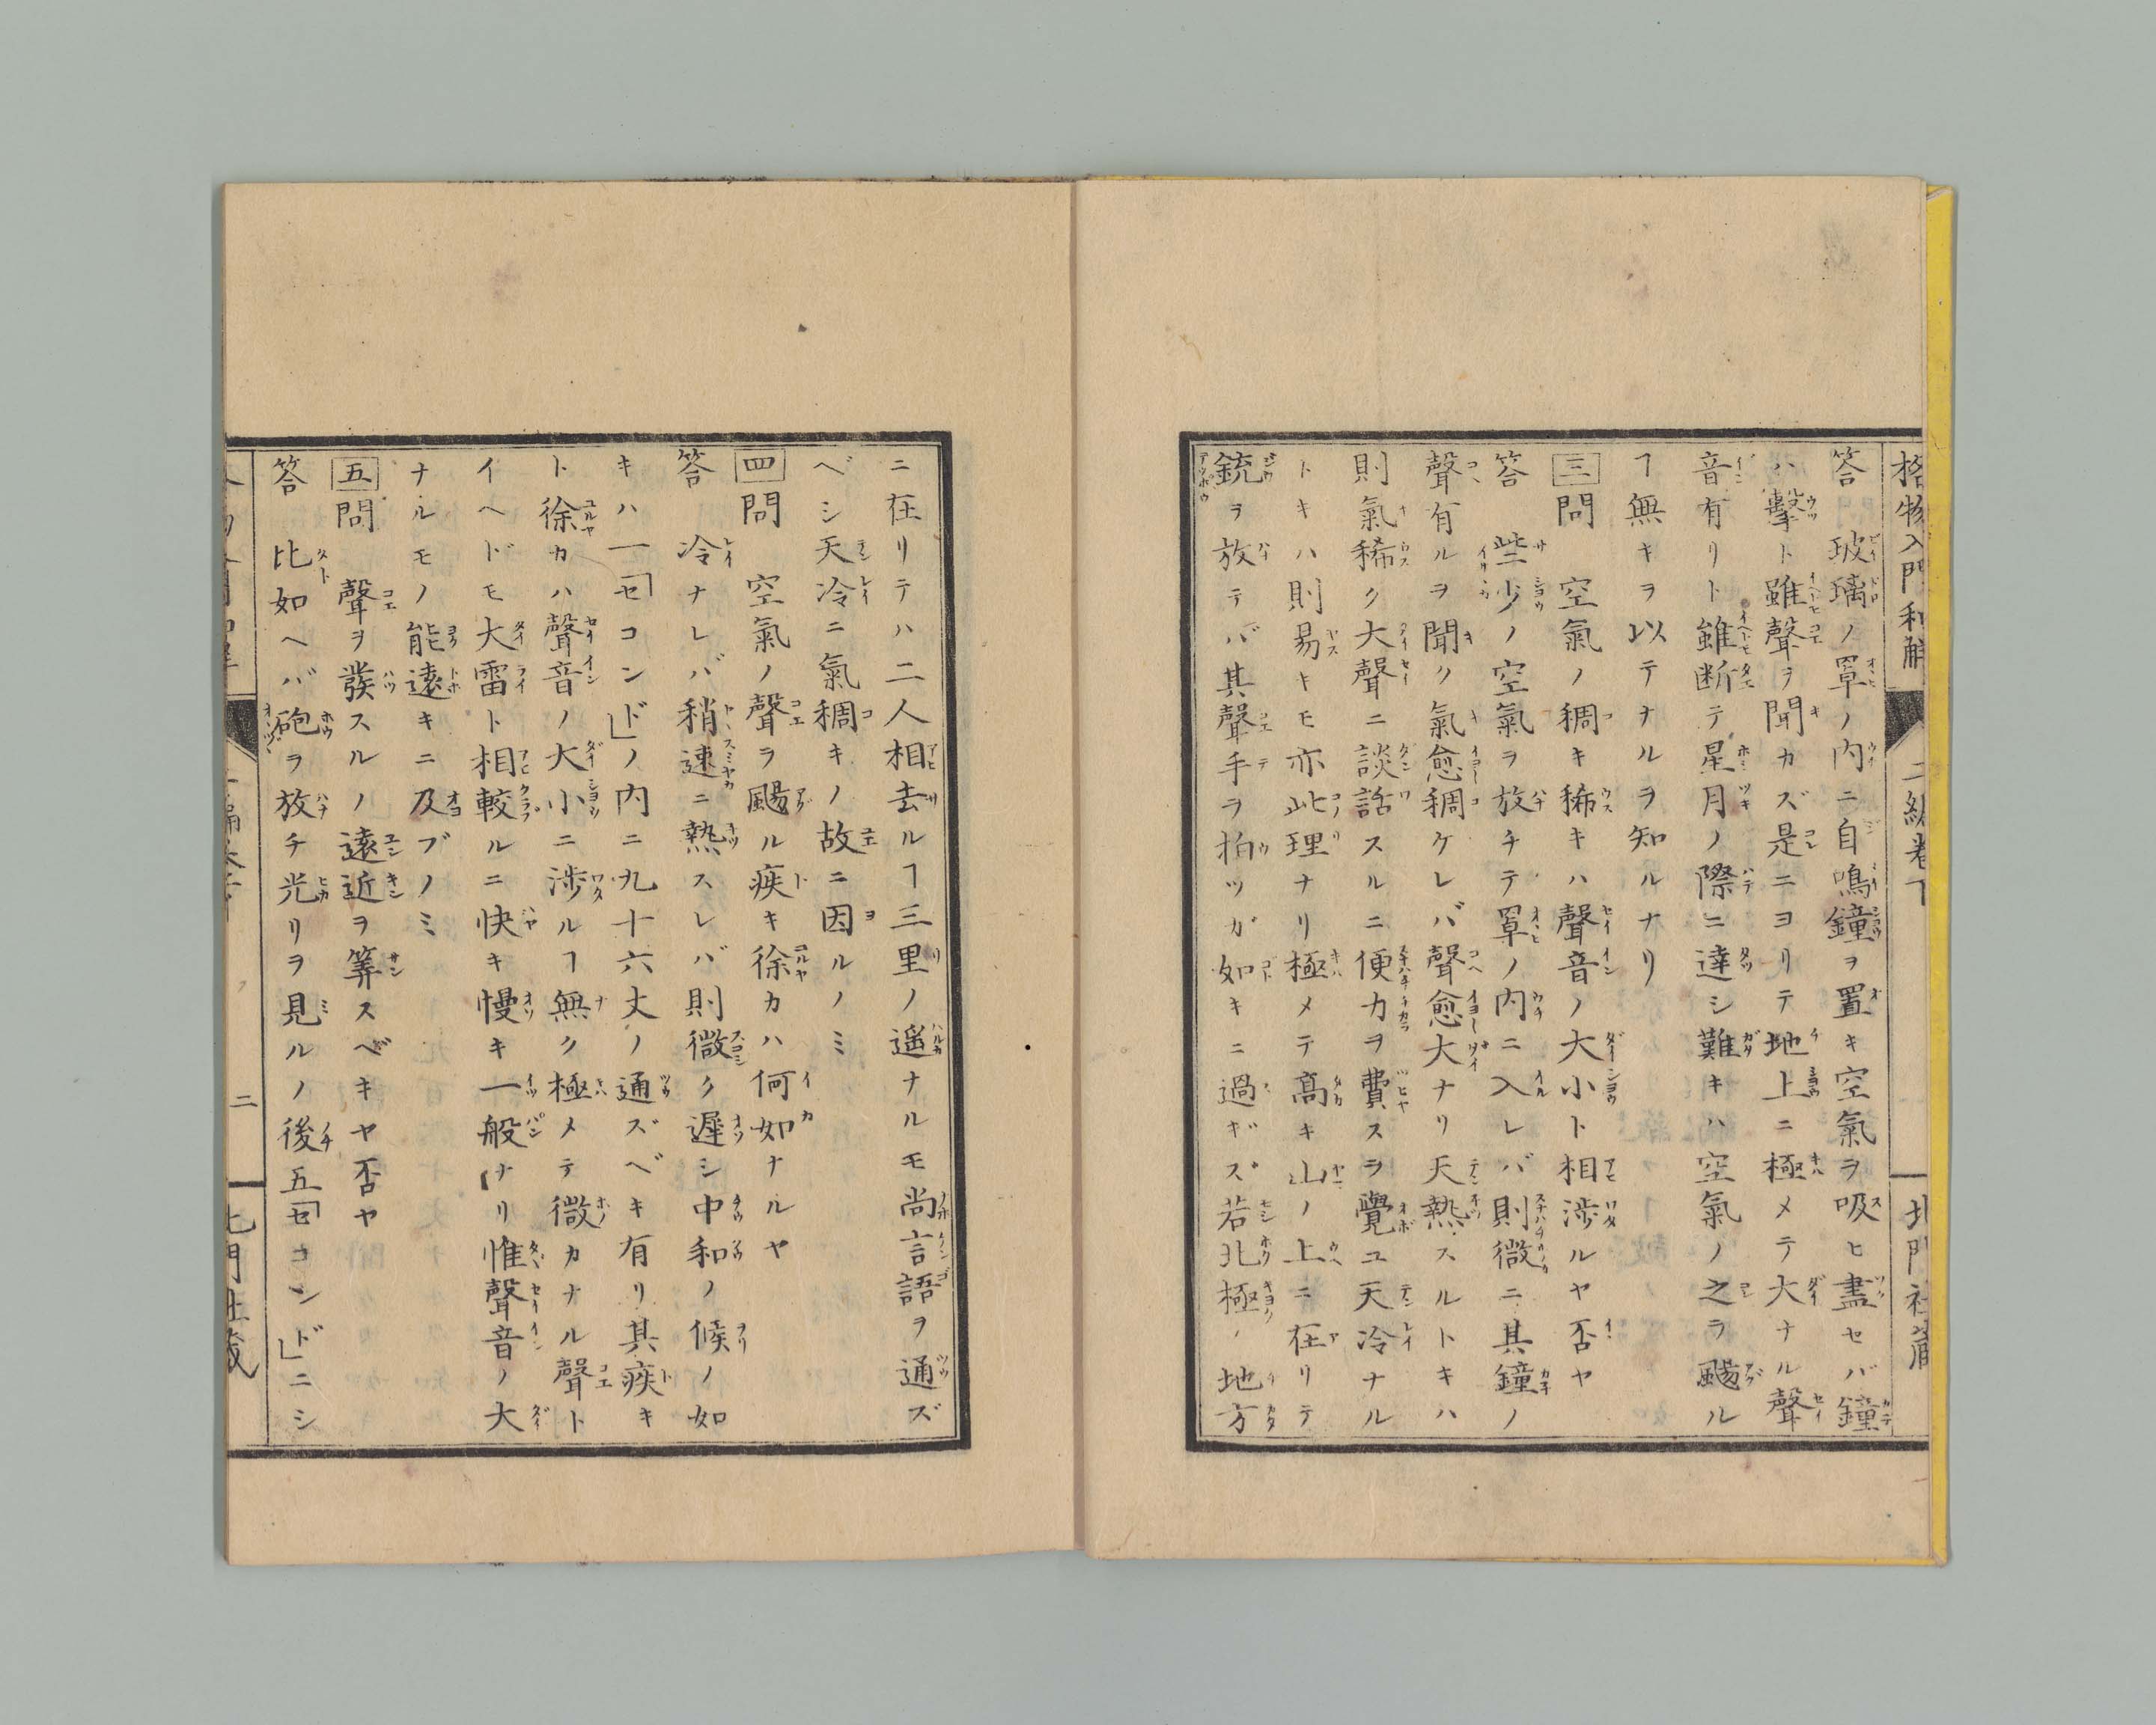 格物入門和解
二編巻下
北門社蔵
答 玻璃ノ罩ノ内ニ自鳴鐘ヲ置キ空氣ヲ吸ヒ盡セバ鐘
ハ擊ト雖聲ヲ聞カズ是ニヨリテ地上ニ極メテ大ナル聲
音有リト雖断テ星月ノ際ニ達シ難キハ空氣ノ之ラ颺ル
ヿ無キヲ以テナルヲ知ルナリ
三問 空氣ノ稠キ稀キハ聲音ノ大小ト相涉ルヤ否ヤ
答 些少ノ空氣ヲ放チテ罩ノ内ニ入レバ則微ニ其鐘ノ
聲有ルヲ聞ク氣愈稠ケレバ聲愈大ナリ天熱スルトキハ
則氣稀ク大聲ニ談話スルニ便力ヲ費スヲ覺ユ天冷ナル
トキハ則易キモ亦此理ナリ極メテ髙キ山ノ上ニ在リテ
銃ヲ放テバ其聲手ヲ拍ツガ如キニ過ギズ若北極ノ地方
ニ在リテハ二人相去ルヿ三里ノ遙ナルモ尚言語ヲ通ズ
ベシ天冷ニ氣稠キノ故ニ因ルノミ
四問 空氣ノ聲ヲ颺ル疾キ徐カハ何如ナルヤ
答 冷ナレバ稍速ニ熱スレバ則微ク遲シ中和ノ候ノ如
キハ一「セコンド」ノ内ニ九十六丈ノ通ズベキ有リ其疾キ
ト徐カハ聲音ノ大小ニ涉ルヿ無ク極メテ微カナル聲ト
イヘドモ大雷ト相較ルニ快キ慢キ一般ナリ惟聲音ノ大
ナルモノ能遠キニ及ブノミ
五問 聲ヲ發スルノ遠近ヲ筭スベキヤ否ヤ
答 比如ヘバ砲ヲ放チ光リヲ見ルノ後五「セコンド」ニシ
二